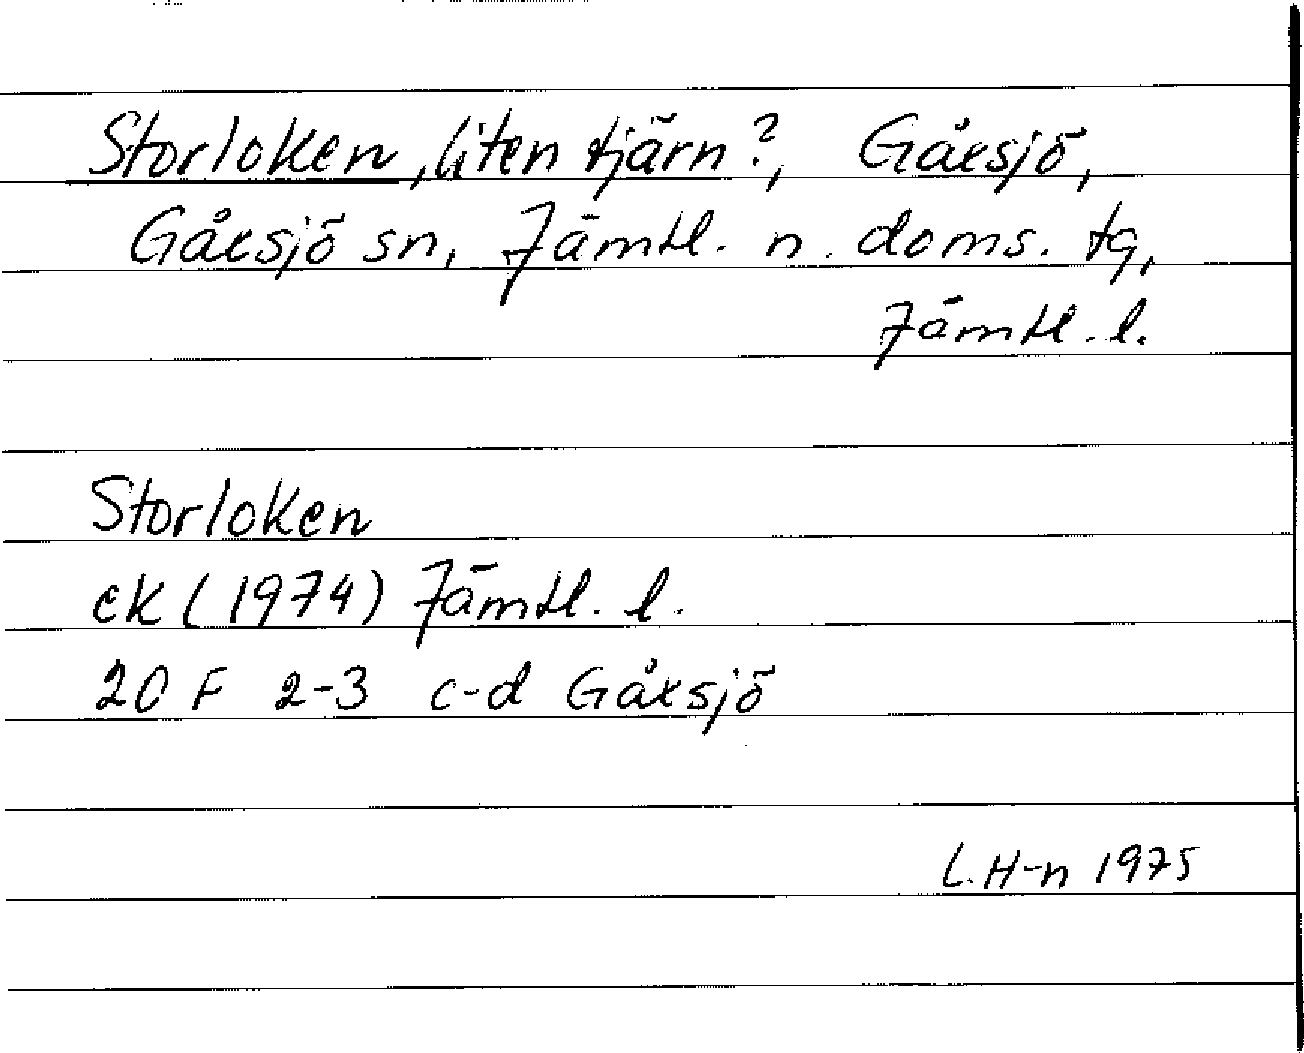 Storloken, liten tjärn?, Gåxsjö,
Gåxsjö sn, Jämtl. n. doms. tg,
Jämtl. l.
Storloken
ek (1974) Jämtl. l.
20 F 2-3 c-d Gåxsjö
L. H-n 1975